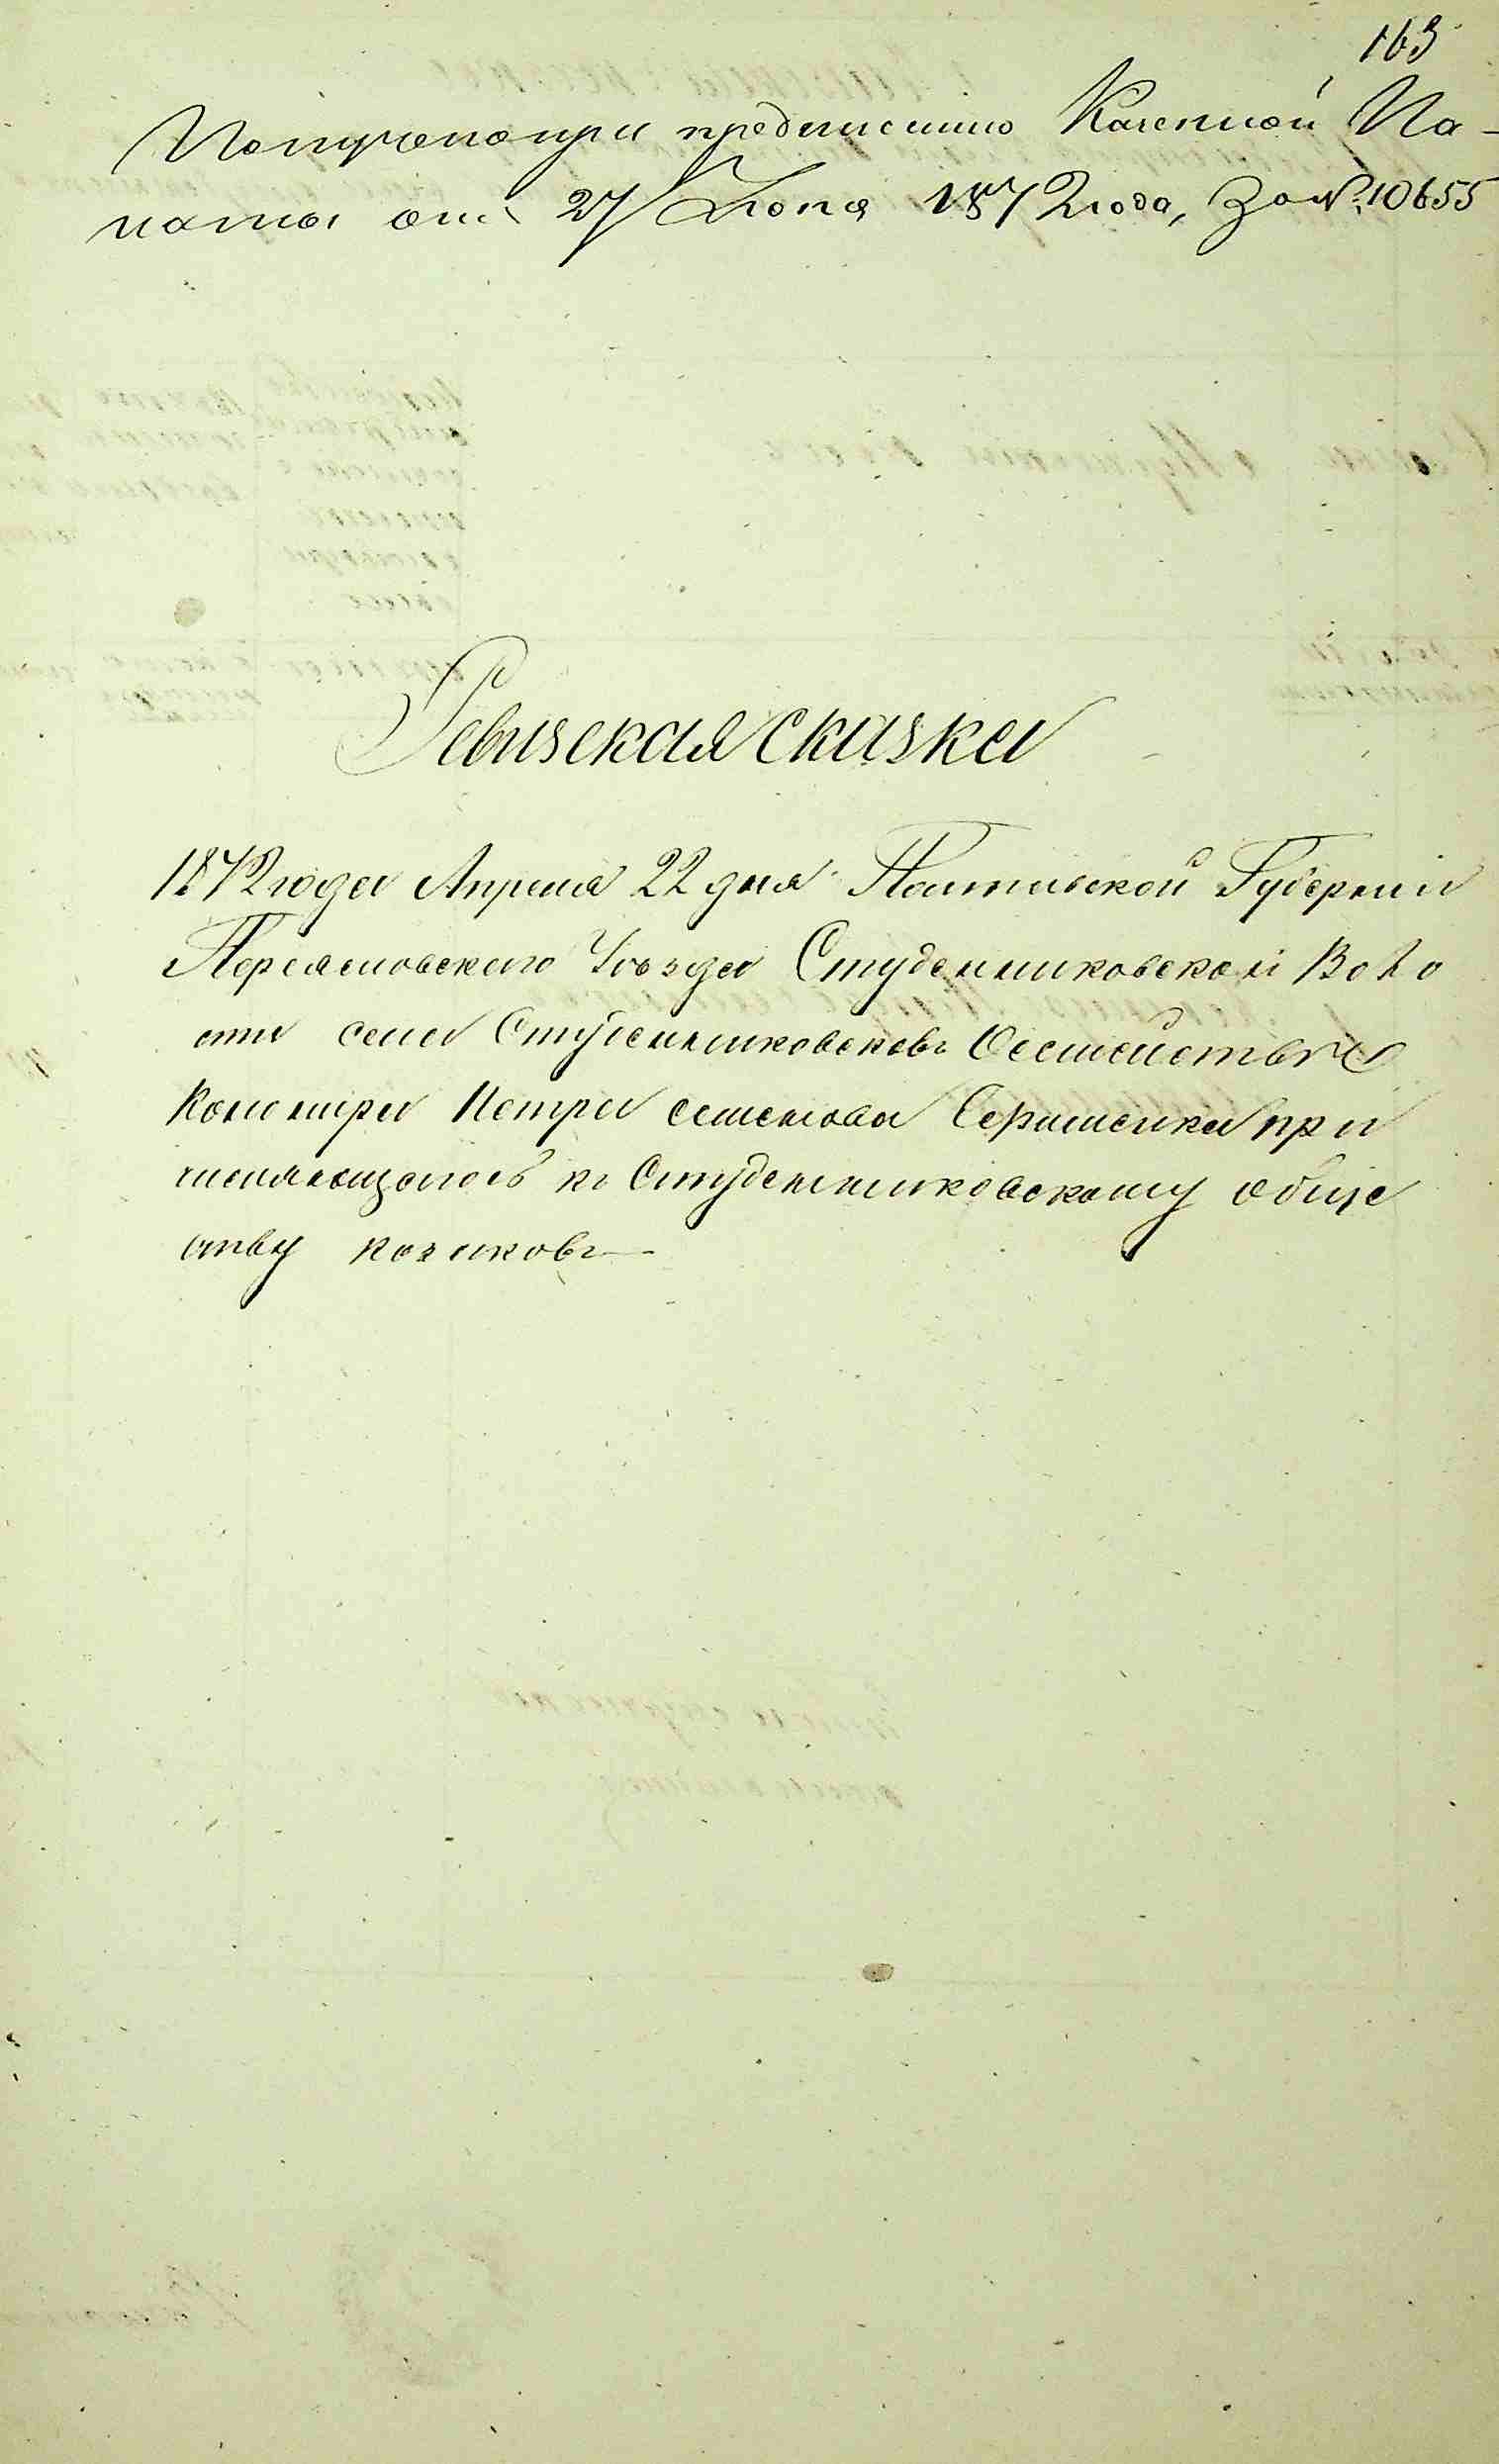 163
Получено при предписании Казенной Па-
латы отъ 27 Іюня 1872 года, За №. 10655
Ревизская сказка
1872 года Апреля 22 дня Полтавской Губерніи
Переясловского Уѣзда Студенниковской Воло
сти села Студенниковсковъ
Петра семенова при
числяющагось къ Студенниковскому обще
ству козаковъ